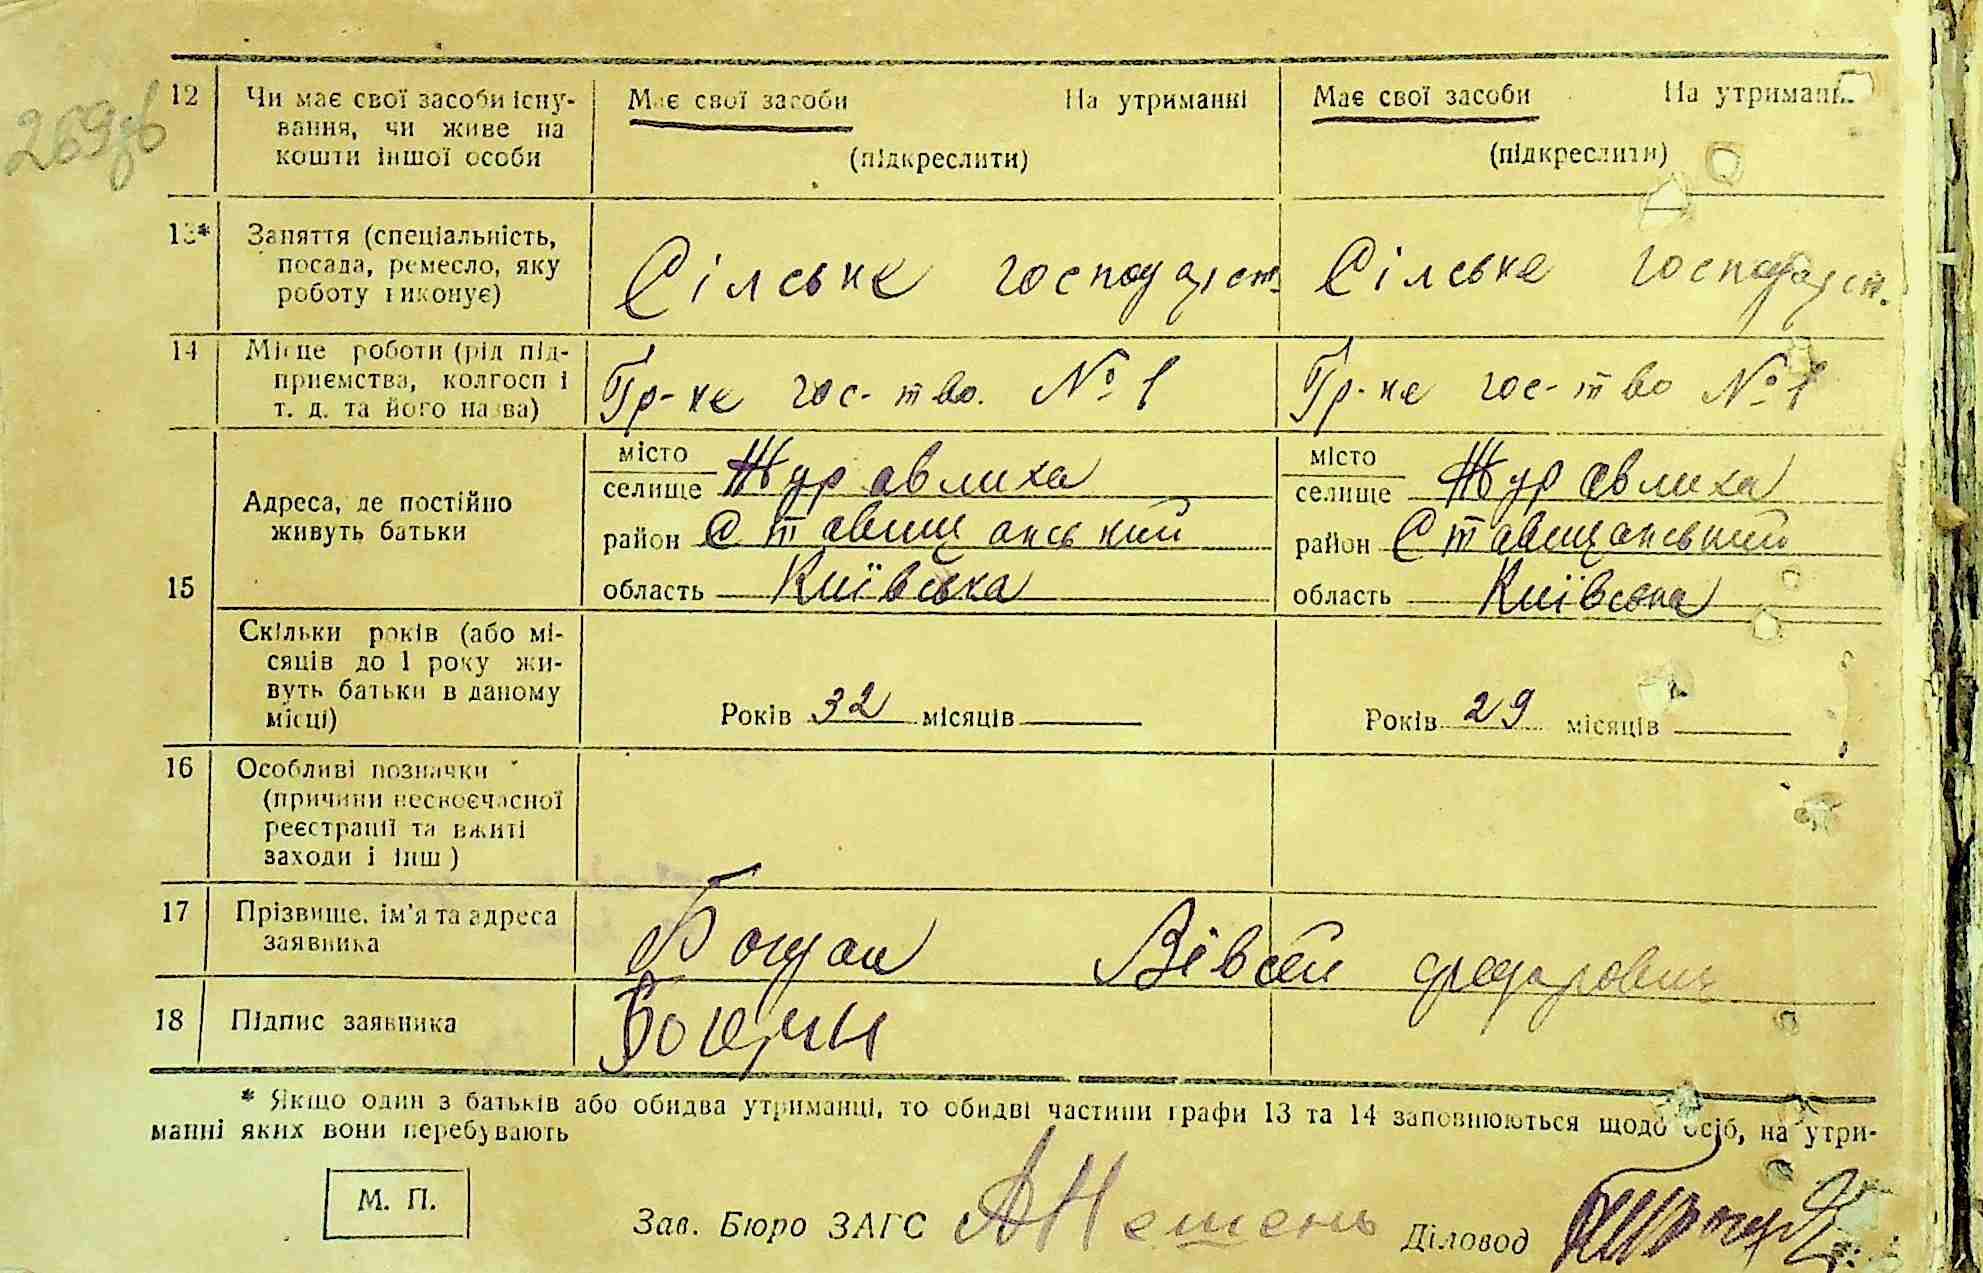 269зв
12 Чи має свої засоби існу- Має свої засоби На утриманні Має свої засоби На утриманні
вання, чи живе на
кошти іншої особи (підкреслити) (підкреслити)
13* Заняття (спеціальність, Сілське господарст. Сілське господарст.
посада, ремесло, яку
роботу виконує)
14 Місце роботи (рід під- Гр-ке гос-тво. № 1 Гр-ке гос-тво № 1
приємства, колгосп і
т. д. та його назва)
15 Адреса, де постійно
живуть батьки
місто
селище Журавлиха
район Ставищанський
область Київська
місто
селище Журавлиха
район Ставищанський
область Київська
Скільки років (або мі-
сяців до 1 року жи-
вуть батьки в даному
місці) Років 32 місяців Років 29 місяців
16 Особливі позначки
(причини несвоєчасної
реєстрації та вжиті
заходи і інш)
17 Прізвище, ім'я та адреса Боцан Вівсей федорович
заявника
18 Підпис заявника
* Якщо один з батьків або обидва утриманці, то обидві частини графи 13 та 14 заповнюються щодо осіб, на утри-
манні яких вони перебувають
М. П.
Зав. Бюро ЗАГС Діловод